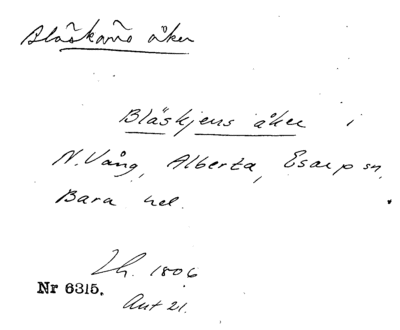 Blåskans åker
Bläskjens åker i
N. Vång, Alberta, Esarp sn,
Bara hd.
Lh. 1806
Nr 6315.
Akt 21.